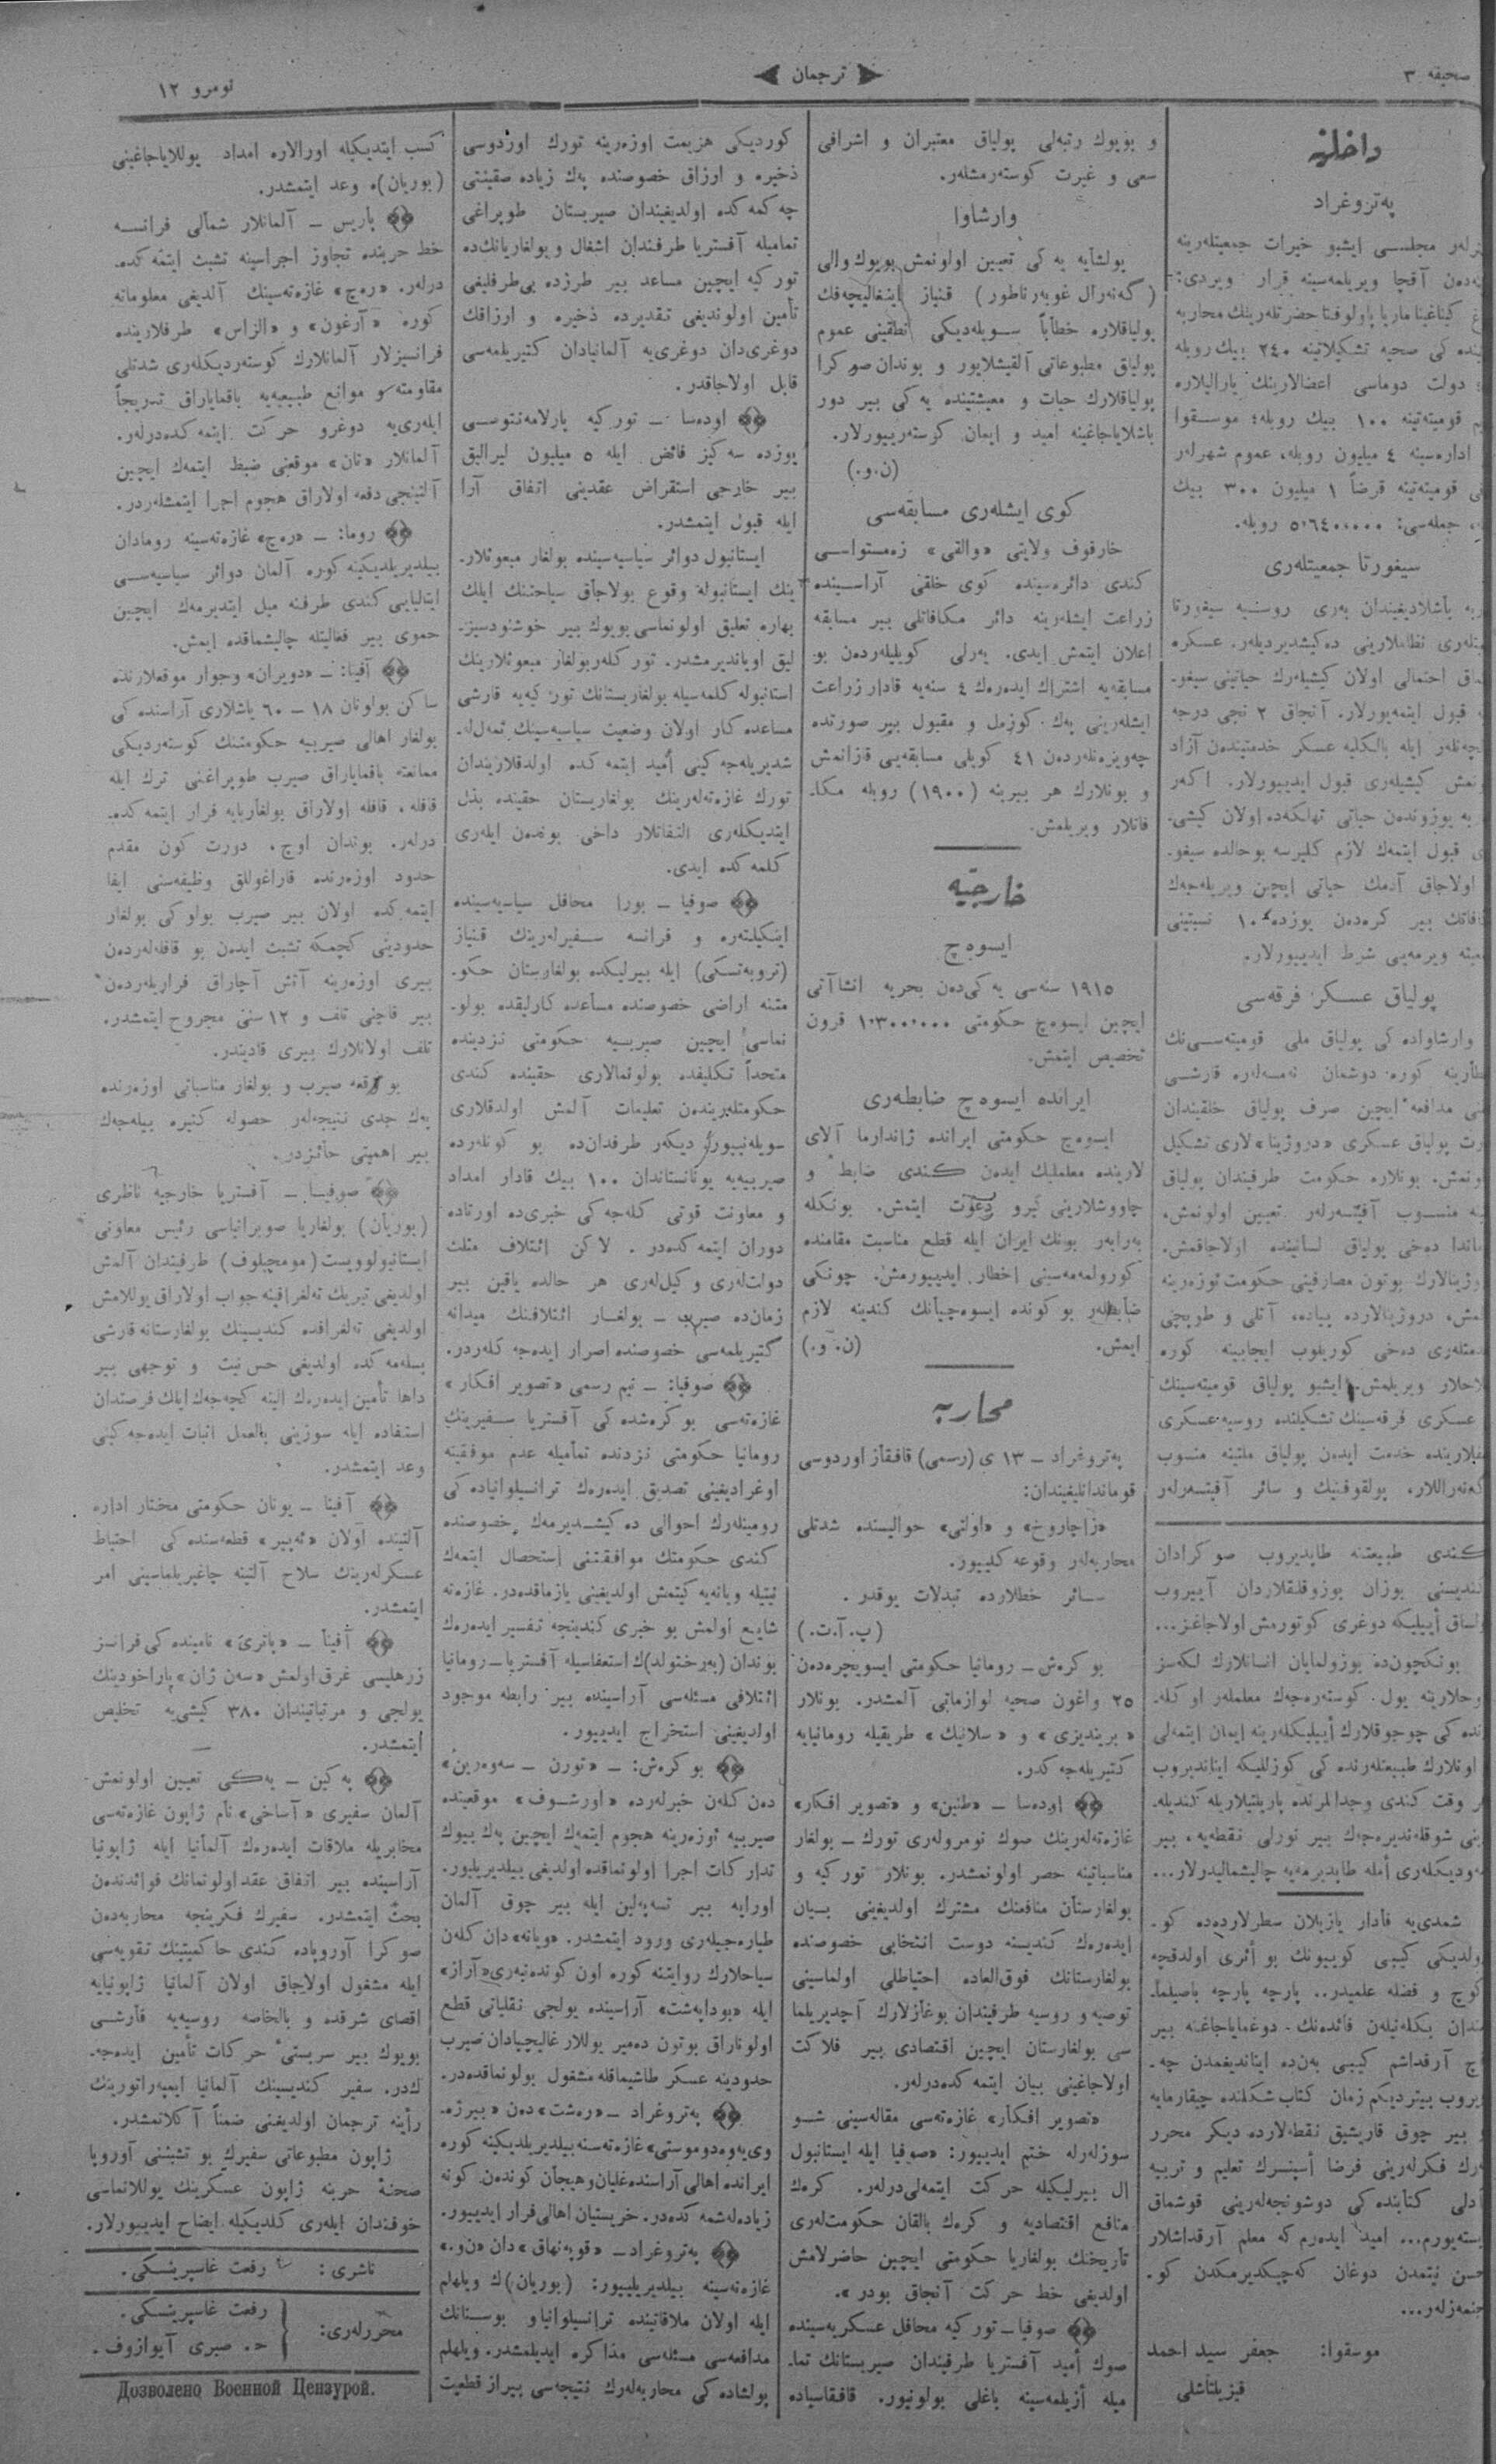 صحیفه ٣
ترجمان
نومرو ١٢
داخلیه
په‌تروغراد
مجلسی ایشبو خیرات جمعیتلەرینه
آقچا ویریلمەسینه قرار ویردی:
کی صحیه تشکیلاتینه ٢٤٠ بیك روبله
دولت دوماسی اعضالارینك یارالیلاره
قومیته‌تینه ١٠٠ بیك روبله؛ موسقوا
اداره‌سینه ٤ میلیون روبله، عموم شهرلەر
قومیته‌تینه قرضاً ١ میلیون ٣٠٠ بیك
جمله‌سی: ٥٬٦٤٠٬٠٠٠ روبله.
سیغورتا جمعیتلەری
باشلادیغیندان به‌ری روسیه سیغورتا
نظاملارینی ده‌کیشدیردیلەر. عسکره
احتمالی اولان کیشیلەرك حیاتینی سیغو-
قبول ایتمەیورلار. آنجاق ٢ نجی درجه
ایله بالکلیه عسکر خدمتیندەن آزاد
کیشیلەری قبول ایدییورلار. اکەر
یوزوندەن حیاتی تهلکه‌ده اولان کیشی-
قبول ایتمەك لازم کلیرسه بو حالده سیغو-
اولاجاق آدمك حیاتی ایچین ویریلەجەك
بیر کره‌دەن یوزده ١٠ نسبتینی
ویرمەیی شرط ایدییورلار.
پولیاق عسکر فرقه‌سی
وارشاواده کی پولیاق ملی قومیته‌سی‌نك
کوره دوشمان نەمسەلەره قارشی
مدافعه ایچین صرف پولیاق خلقیندان
پولیاق عسکری «دروژینا» لاری تشکیل
بونلاره حکومت طرفیندان پولیاق
منسوب آفیتسەرلەر تعیین اولونمش،
دەخی پولیاق لسانینده اولاجاقمش.
بوتون مصارفینی حکومت ئوزەرینه
دروژینالارده پیاده، آتلی و طوپچی
دەخی کوریلوب ایجابینه کوره
ویریلمش. ایشبو پولیاق قومیته‌سینك
عسکری فرقه‌سینك تشکیلنده روسیه عسکری
خدمت ایدەن پولیاق ملتینه منسوب
پولقوفنیك و سائر آفیتسەرلەر
کندی طبیعتنه طاپدیروب صوکرادان
بوزان بوزوقلقلاردان آییروب
أییلیکه دوغری کوتورمش اولاجاغز...
بونکچون‌ده بوزولمایان انسانلارك لکه‌سز
یول کوستەره‌جەك معلملەر اوکله-
کی چوجوقلارك أییلیکلەرینه ایمان ایتمەلی
اونلارك طبیعتلەرنده کی کوزللیکه ایناندیروب
وقت کندی وجدانلرنده پاریلتیلاریله کندیله-
شوقلەندیره‌جەك بیر نورلی نقطه‌یه، بیر
أمله طاپدیرمەیه چالیشمالیدرلار...
شمدی‌یه قادار یازیلان سطرلارده‌ده کو-
کیبی کویینونك بو أثری اولدقجه
کوچ و فضله علمیدر.. پارچه پارچه باصیلما-
بکله‌نیلەن فائده‌نك دوغمایاجاغنه بیر
آرقداشم کیبی بەن‌ده ایناندیغمدن چه-
بیتردیکم زمان کتاب شکلنده چیقارمایه
بیر چوق قاریشیق نقطه‌لارده دیکر محرر
فکرلەرینی فرضا أسینسرك تعلیم و تربیه
کتابنده کی دوشونجه‌لەرینی قوشماق
ایسته‌یورم... امید ایدەرم که معلم آرقداشلار
حسن نیتمدن دوغان کەچیکدیرمکدن کو-
جنمەزلەر...
موسقوا: جعفر سید احمد
قیزیلتاشلی
و بویوك رتبه‌لی پولیاق معتبران و اشرافی
سعی و غیرت کوستەرمشلەر.
وارشاوا
پولشایه یه‌کی تعیین اولونمش بویوك والی
(گەنەرال غوبەرناطور) قنیاز اینغالیچەفك
پولیاقلاره خطاباً سویله‌دیکی نطقینی عموم
پولیاق مطبوعاتی آلقیشلایور و بوندان صوکرا
پولیاقلارك حیات و معیشتینده یه‌کی بیر دور
باشلایاجاغینه امید و ایمان کوستەرییورلار.
(ن. و.)
کوی ایشلەری مسابقه‌سی
خارقوف ولایتی «والقی» زەمستواسی
کندی دائره‌سینده کوی خلقی آراسینده
زراعت ایشلەرینه دائر مکافاتلی بیر مسابقه
اعلان ایتمش ایدی. یەرلی کویلیلەردەن بو
مسابقه‌یه اشتراك ایدەرەك ٤ سنه‌یه قادار زراعت
ایشلەرینی پەك کوزەل و مقبول بیر صورتده
چەویرەنلەردەن ٤١ کویلی مسابقه‌یی قازانمش
و بونلارك هر بیرینه (١٩٠٠) روبله مکا-
فاتلار ویریلمش.
خارجیّه
ایسوەچ
١٩١٥ سنه‌سی یه‌کی‌دەن بحریه انشاآتی
ایچین ایسوەچ حکومتی ١٬٣٠٠٬٠٠٠ قرون
تخصیص ایتمش.
ایرانده ایسوەچ ضابطه‌ری
ایسوەچ حکومتی ایرانده ژاندارما آلای
لارینده معلملیك ایدەن کندی ضابط و
چاووشلارینی گیرو دعوت ایتمش. بونکله
به‌رابەر بونك ایران ایله قطع مناسبت مقامنده
کورولمەمەسینی اخطار ایدییورمش. چونکی
ضابطلەر بو کونده ایسوەچیانك کندینه لازم
ایمش. (ن. و.)
محاربه
په‌تروغراد – ١٣ ی (رسمی) قافقاز اوردوسی
قوماندانلیغیندان:
«زاچاروخ» و «اولتی» حوالیسنده شدتلی
محاربه‌لەر وقوعه کلییور.
سائر خطلارده تبدلات یوقدر.
(پ. آ. ت.)
بوکرەش – رومانیا حکومتی ایسویچره‌دەن
٢٥ واغون صحیه لوازماتی آلمشدر. بونلار
«بریندیزی» و «سلانیك» طریقیله رومانیایه
کتیریلەجەکدر.
اودەسا – «طنین» و «تصویر افکار»
غازەته‌لەرینك صوك نومرولەری تورك – بولغار
مناسباتینه حصر اولونمشدر. بونلار تورکیه و
بولغارستان منافعنك مشترك اولدیغینی بیان
ایدەرەك کندیسنه دوست انتخابی خصوصنده
بولغارستانك فوق‌العاده احتیاطلی اولماسینی
توصیه و روسیه طرفیندان بوغازلارك آچدیریلما
سی بولغارستان ایچین اقتصادی بیر فلاکت
اولاجاغینی بیان ایتمەکده‌درلەر.
«تصویر افکار» غازەته‌سی مقاله‌سینی شو
سوزلەرله ختم ایدییور: «صوفیا ایله ایستانبول
ال بیرلیکیله حرکت ایتمەلی‌درلەر. کرەك
منافع اقتصادیه و کرەك بالقان حکومت‌لەری
تأریخنك بولغاریا حکومتی ایچین حاضرلامش
اولدیغی خط حرکت آنجاق بودر».
صوفیا – تورکیه محافل عسکریه‌سینده
صوك أمید آفستریا طرفیندان صیربستانك تما-
میله أزیلمەسینه باغلی بولونیور. قافقاسیاده
کوردیکی هزیمت اوزەرینه تورك اوردوسی
ذخیره و ارزاق خصوصنده پەك زیاده صقینتی
چەکمەکده اولدیغیندان صیربستان طوپراغی
تمامیله آفستریا طرفندان اشغال و بولغاریانك‌ده
تورکیه ایچین مساعد بیر طرزده بی‌طرفلیغی
تأمین اولوندیغی تقدیرده ذخیره و ارزاقك
دوغری‌دان دوغری‌یه آلمانیادان کتیریلمەسی
قابل اولاجاقدر.
اودەسا – تورکیه پارلامەنتوسی
یوزده سەکیز فائض ایله ٥ میلیون لیرالیق
بیر خارجی استقراض عقدینی اتفاق آرا
ایله قبول ایتمشدر.
ایستانبول دوائر سیاسیه‌سینده بولغار مبعوثلار-
ینك ایستانبوله وقوع بولاجاق سیاحتنك ایلك
بهاره تعلیق اولونماسی بویوك بیر خوشنودسیز-
لیق اویاندیرمشدر. تورکلەر بولغار مبعوثلارینك
استانبوله کلمه‌سیله بولغارستانك تورکیه‌یه قارشی
مساعده‌کار اولان وضعیت سیاسیه‌سینك تمەل‌له-
شدیریلەجەکینی أمید ایتمەکده اولدقلاریندان
تورك غازەته‌لەرینك بولغارستان حقینده بذل
ایتدیکلەری التفاتلار داخی بوندەن ایلەری
کلمەکده ایدی.
صوفیا – بورا محافل سیاسیه‌سینده
اینکیلتەره و فرانسه سفیرلەرینك قنیاز
(تروبه‌تسکی) ایله بیرلیکده بولغارستان حکو-
متنه اراضی خصوصنده مساعده‌کارلیقده بولو-
نماسی ایچین صیربیه حکومتی نزدینده
متحداً تکلیفده بولونمالاری حقینده کندی
حکومتلەریندەن تعلیمات آلمش اولدقلاری
سویله‌نییور. دیکەر طرفدان‌ده بو کونلەرده
صیربیه‌یه یونانستاندان ١٠٠ بیك قادار امداد
و معاونت قوتی کلەجەکی خبری‌ده اورتاده
دوران ایتمەکده‌در. لاکن ائتلاف مثلث
دولت‌لەری وکیل‌لەری هر حالده یاقین بیر
زمان‌ده صیرب – بولغار ائتلافنك میدانه
کتیریلمەسی خصوصنده اصرار ایدەجەکلەردر.
صوفیا: – نیم رسمی «تصویر افکار»
غازەته‌سی بوکرەشده کی آفستریا سفیرینك
رومانیا حکومتی نزدنده تمامیله عدم موفقیته
اوغرادیغینی تصدیق ایدەرەك ترانسیلوانیاده کی
رومینلەرك احوالی دەکیشدیرمەك خصوصنده
کندی حکومتنك موافقتنی استحصال ایتمەك
نیتیله ویانه‌یه کیتمش اولدیغینی یازماقده‌در. غازەته
شایع اولمش بو خبری کندینجه تفسیر ایدەرەك
بوندان (بەرختولد)ك استعفاسیله آفستریا – رومانیا
ائتلافی مسئله‌سی آراسینده بیر رابطه موجود
اولدیغینی استخراج ایدییور.
بوکرەش: – «تورن – سەوەرین»
دەن کلەن خبرلەرده «اورشوف» موقعینده
صیربیه ئوزەرینه هجوم ایتمەك ایچین پەك بویوك
تدارکات اجرا اولونماقده اولدیغی بیلدیریلیور.
اورایه بیر تسەپەلین ایله بیر چوق آلمان
طیاره‌جیلەری ورود ایتمشدر. «ویانه» دان کلەن
سیاحلارك روایتنه کوره اون کوندەنبەری «آراز»
ایله «بوداپەشت» آراسینده یولجی نقلیاتی قطع
اولوناراق بوتون دەمیر یوللار غالیچیادان صیرب
حدودینه عسکر طاشیماقله مشغول بولونماقده‌در.
په‌تروغراد – «رەشت» دەن «بیرژه-
وی‌یه وەدوموستی» غازەته‌سنه بیلدیریلدیکینه کوره
ایرانده اهالی آراسنده غلیان و هیجان کوندەن کونه
زیاده‌لەشمەکده‌در. خریستیان اهالی فرار ایدییور.
په‌تروغراد – «قوپەنهاق» دان «ن. و.»
غازەته‌سینه بیلدیریلییور: (بوریان)ك ویلهلم
ایله اولان ملاقاتینده ترانسیلوانیا و بوسنانك
مدافعه‌سی مسئله‌سی مذاکره ایدیلمشدر. ویلهلم
پولشاده کی محاربه‌لەرك نتیجه‌سی بیراز قطعیت
کسب ایتدیکیله اورالاره امداد یوللایاجاغینی
(بوریان)ه وعد ایتمشدر.
پاریس – آلمانلار شمالی فرانسه
خط حربنده تجاوز اجراسینه تشبث ایتمەکده-
درلەر. «رەچ» غازەته‌سینك آلدیغی معلوماته
کوره «آرغون» و «الزاس» طرفلارینده
فرانسیزلار آلمانلارك کوستەردیکلەری شدتلی
مقاومته و موانع طبیعیه‌یه باقمایاراق تدریجاً
ایلەری‌یه دوغرو حرکت ایتمەکده‌درلەر.
آلمانلار «تان» موقعنی ضبط ایتمەك ایچین
آلتینجی دفعه اولاراق هجوم اجرا ایتمشلەردر.
روما: – «رەچ» غازەته‌سینه رومادان
بیلدیریلدیکینه کوره آلمان دوائر سیاسیه‌سی
ایتالیایی کندی طرفنه میل ایتدیرمەك ایچین
حموی بیر فعالیتله چالیشماقده ایمش.
آفینا: – «دویران» وجوار موقعلارنده
ساکن بولونان ١٨ – ٦٠ یاشلاری آراسنده کی
بولغار اهالی صیربیه حکومتنك کوستەردیکی
ممانعته باقمایاراق صیرب طوپراغنی ترك ایله
قافله، قافله اولاراق بولغاریایه فرار ایتمەکده-
درلەر. بوندان اوچ، دورت کون مقدم
حدود اوزەرنده قاراغوللق وظیفه‌سنی ایفا
ایتمەکده اولان بیر صیرب بولوکی بولغار
حدودینی کچمکه تشبث ایدەن بو قافله‌لەردەن
بیری اوزەرینه آتش آچاراق فراریلەردەن
بیر قاچنی تلف و ١٢ سنی مجروح ایتمشدر.
تلف اولانلارك بیری قادیندر.
بو وقعه صیرب و بولغار مناسباتی اوزەرنده
پەك جدی نتیجه‌لەر حصوله کتیره بیلەجەك
بیر اهمیتی حائزدر.
صوفیا – آفستریا خارجیه ناظری
(بوریان) بولغاریا صوبرانیاسی رئیس معاونی
ایستانبولوویست (مومچیلوف) طرفیندان آلمش
اولدیغی تبریك تەلغرافینه جواب اولاراق یوللامش
اولدیغی تەلغرافده کندیسینك بولغارستانه قارشی
بسلەمەکده اولدیغی حسن نیت و توجهی بیر
داها تأمین ایدەرەك الینه کچەجەك ایلك فرصتدان
استفاده ایله سوزینی بالعمل اثبات ایدەجەکینی
وعد ایتمشدر.
آفینا – یونان حکومتی مختار اداره
آلتینده اولان «ئەپیر» قطعه‌سنده کی احتیاط
عسکرلەرینك سلاح آلتینه چاغیریلماسینی امر
ایتمشدر.
آفینا – «پاتری» نامینده کی فرانسز
زرهلیسی غرق اولمش «سەن ژان» پاراخودینك
یولجی و مرتباتیندان ٣٨٠ کیشی‌یه تخلیص
ایتمشدر.
پەکین – یەکی تعیین اولونمش
آلمان سفیری «آساخی» نام ژاپون غازەته‌سی
مخابریله ملاقات ایدەرەك آلمانیا ایله ژاپونیا
آراسینده بیر اتفاق عقد اولونمانك فوائدندەن
بحث ایتمشدر. سفیرك فکرینجه محاربه‌دەن
صوکرا آوروپاده کندی حاکمیتینك تقویه‌سی
ایله مشغول اولاجاق اولان آلمانیا ژاپونیایه
اقصای شرقده و بالخاصه روسیه‌یه قارشی
بویوك بیر سربستئ حرکات تأمین ایدەجه-
كدر. سفیر کندیسینك آلمانیا ایمپەراتورینك
رأیینه ترجمان اولدیغینی ضمناً آکلاتمشدر.
ژاپون مطبوعاتی سفیرك بو تشبثنی آوروپا
صحنهٔ حربنه ژاپون عسکرینك یوللانماسی
خوفندان ایلەری کلدیکیله ایضاح ایدییورلار.
ناشری: رفعت غاسپرینسکی.
محررلەری: رفعت غاسپرینسکی.
ح. صبری آیوازوف.
Дозволено Военной Цензурой.